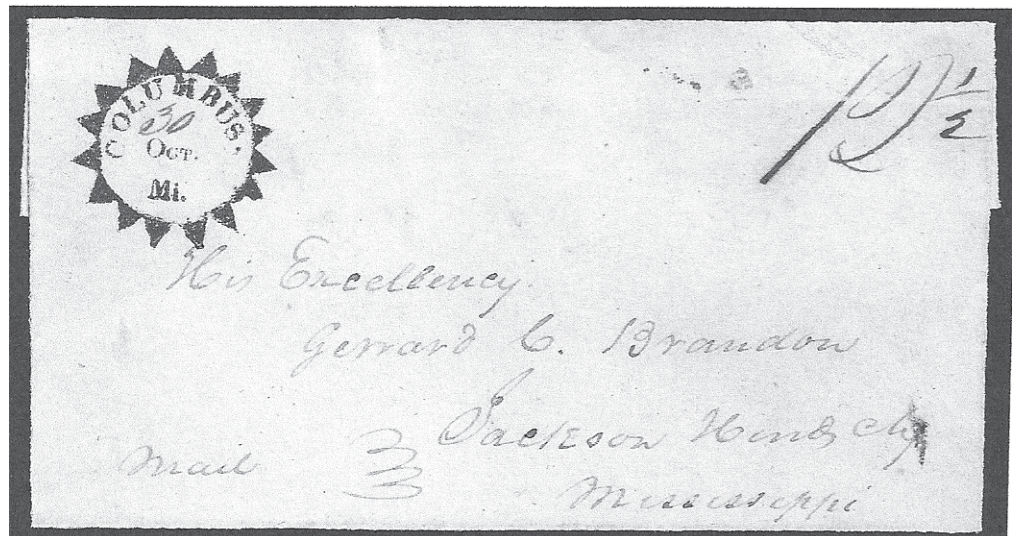 COLUMBUS.
30
OCT.
Mi.
12 1/2
His Excellency.
Gerrard C. Brandon
Jackson Hinds Cty
Mail
Mississippi